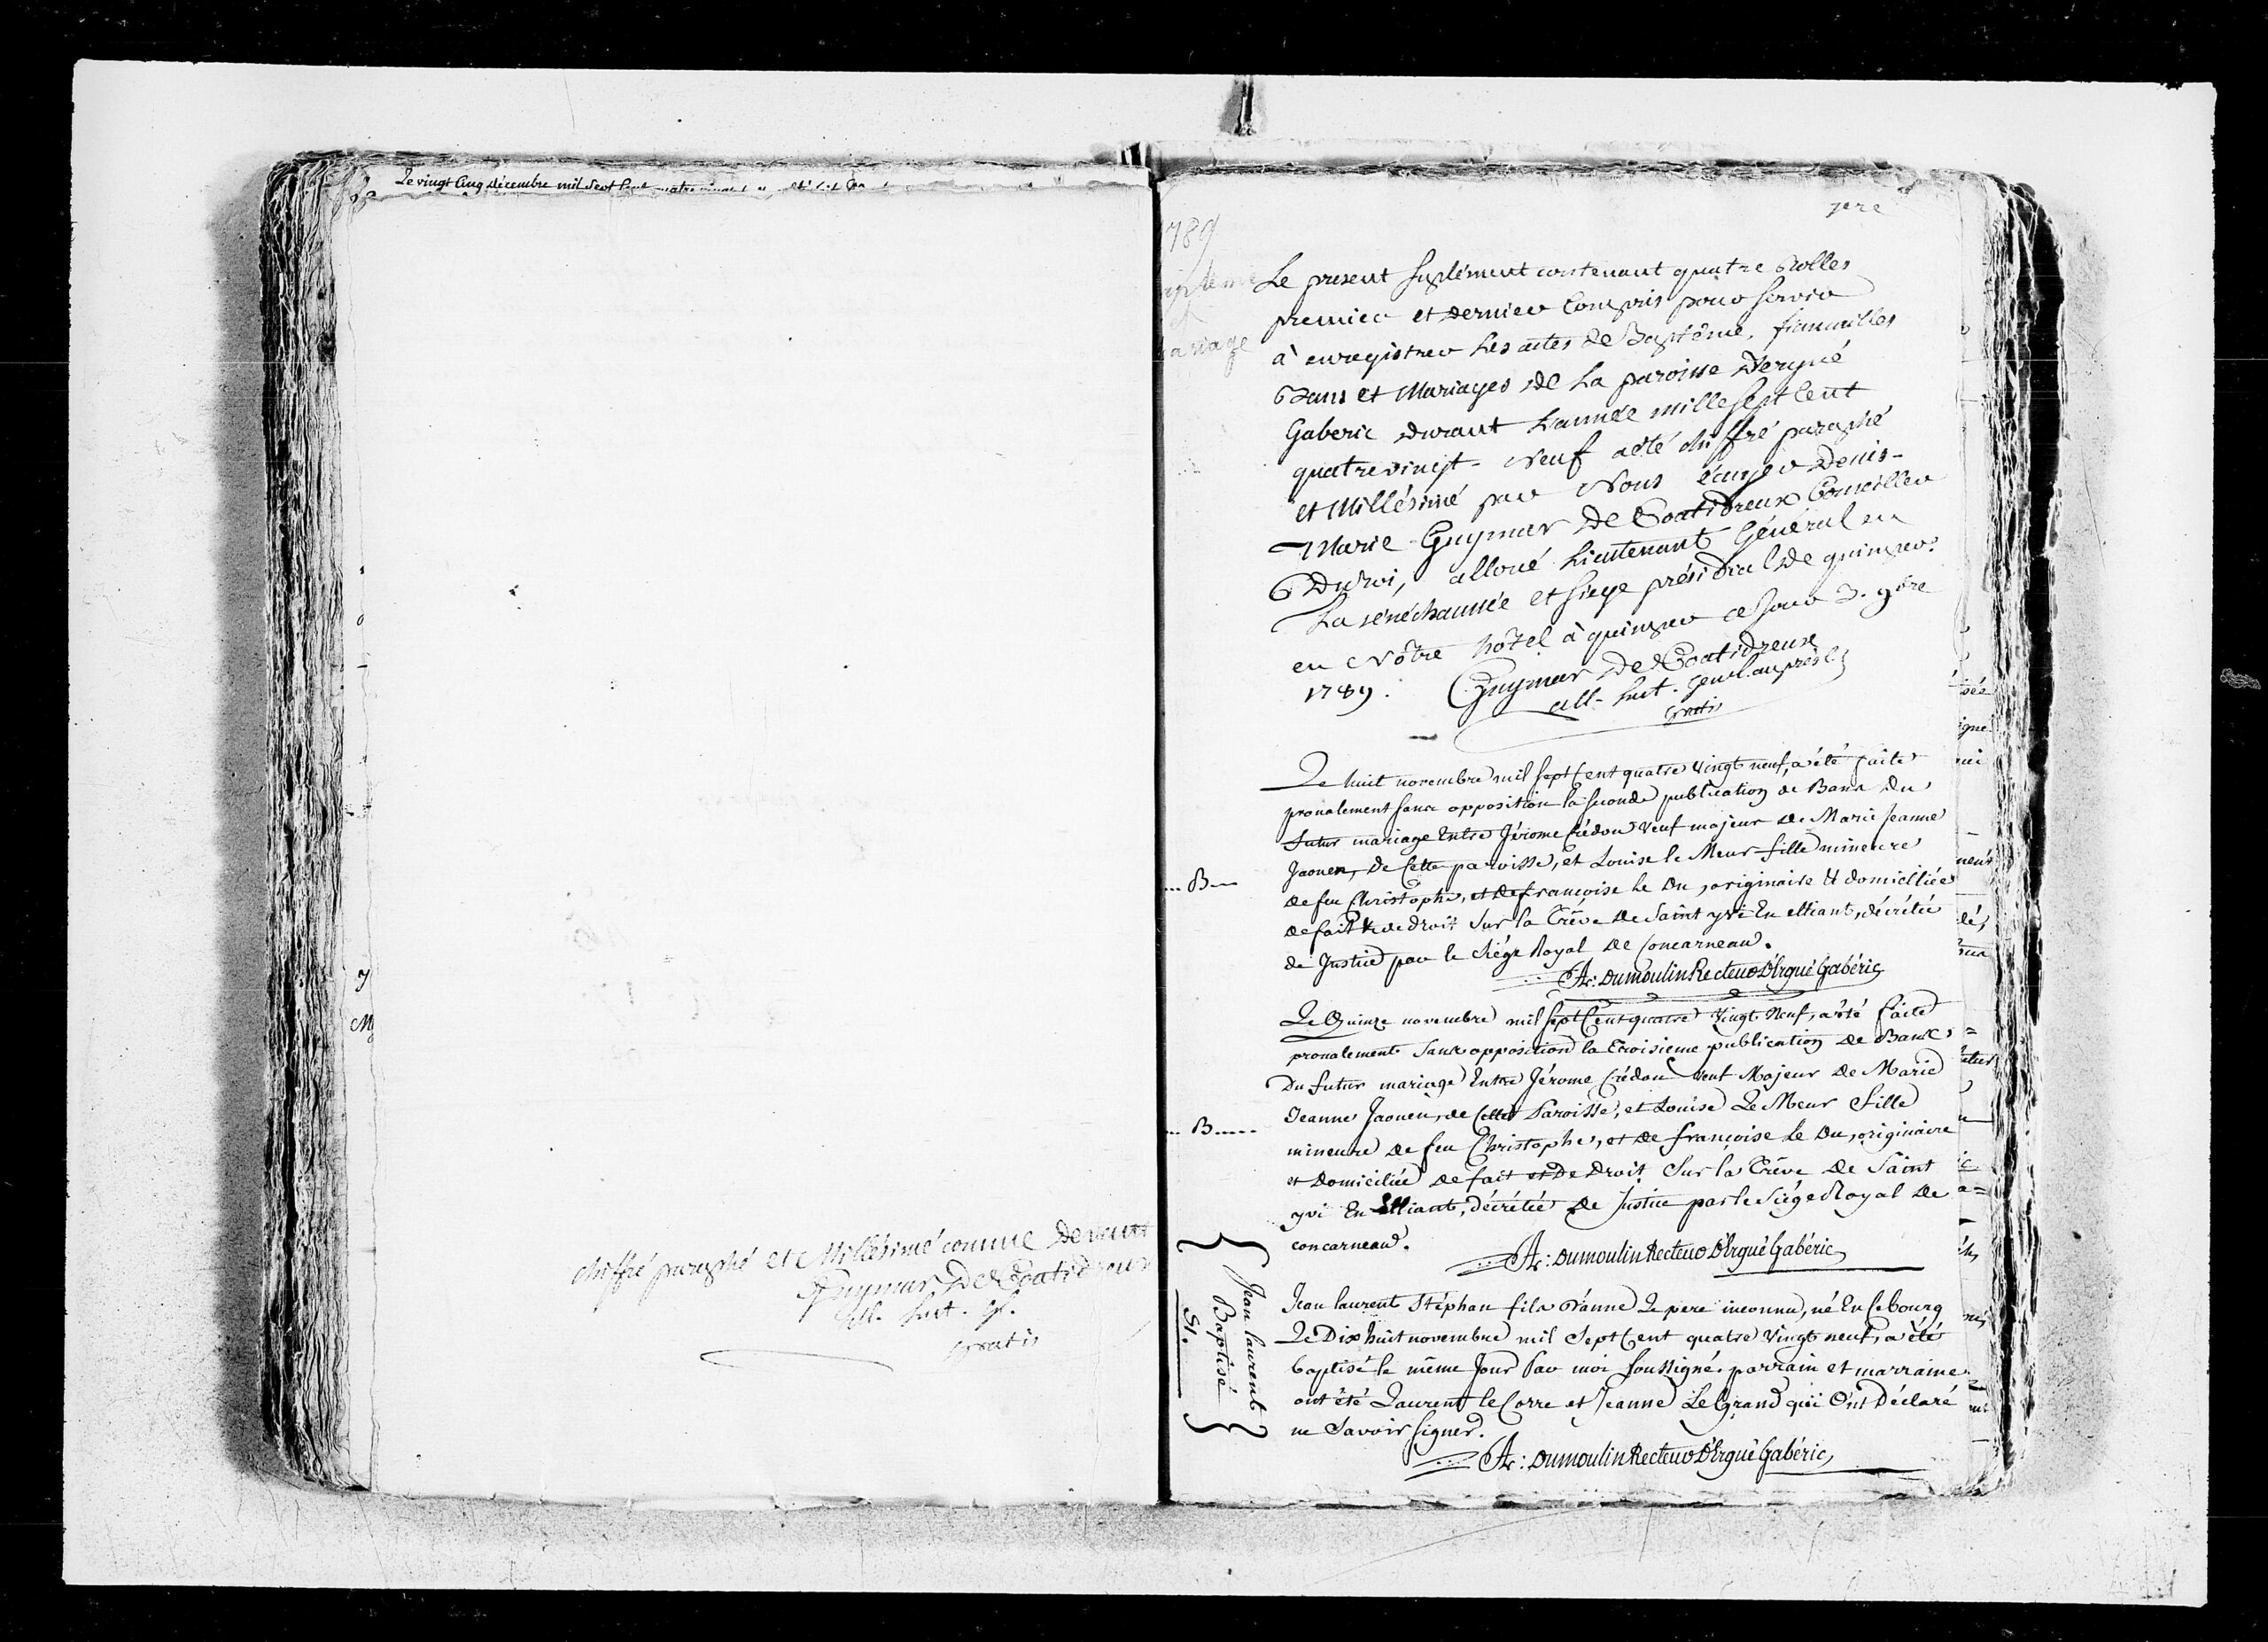 Le vingt Cinq Décembre mil Sept Cent
chiffré paraphé et Millésimé comme devant
Guymar De Coatidreux
all. Lieut. gl.
gratis
1789
mariage
1ere
Le present suplément contenant quatre Rolles
premier et dernier Compris pour servir
à enregistrer les actes de Baptême, fiansailles
Bans et Mariages de la paroisse d'ergué
Gaberic durant L'année mille sept cent
quatrevingt-neuf a été chiffré paraphé
et Millésimé par Nous Denis-
Marie Guymar De Coatidreux Conseiller
Du Roi, alloué Lieutenant Général en
La sénéchaussée et siege présidial de quimper
en Nôtre hôtel à quimper ce jour 3. 9bre
1789. Guymar De Coatidreux
all- Lieut. genl. au présl.
gratis
Le huit novembre mil sept Cent quatre vingt neuf, a été faite
pronalement sans opposition la seconde publication de Bans Du
Futur mariage Entre Jérome Crédou Veuf majeur de Marie Jeanne
Jaouen, De Cette paroisse, et Louise le Meur fille mineure
de feu Christophe, et De françoise le Du, originaire et domiciliée
de fait et de droit Sur la Trêve De Saint yvi En elliant, décrétée
de Justice par le Siége Royal de Concarneau.
A: Dumoulin Recteur D'Ergué Gabéric
... B...
Le Quinze novembre mil sept Cent quatre Vingt Neuf, a été faite
pronalement Sans opposition la Troisieme publication de Bans
Du futur mariage Entre Jérome Crédou Veuf Majeur de Marie
Jeanne Jaouen, de Cette Paroisse, et Louise Le Meur Fille
mineure de feu Christophe, et De françoise Le Du, originaire
et Domiciliée de fait et De Droit Sur la Trêve de Saint
yvi En Elliant, décrétée De Justice par le Siége Royal de
concarneau.
A: Dumoulin Recteur D'Ergué Gabéric
... B.....
Jean laurent
Baptisé
St.
Jean laurent Stéphan fils D'anne Le pere inconnu, né En ce bourg
Le Dix huit novembre mil Sept Cent quatre Vingt neuf, a été
baptisé le même Jour Par moi Soussigné. parrain et marraine
ont été Laurent le Corre et Jeanne Le Grand qui Ont Déclaré
ne Savoir Signer.
A: Dumoulin Recteur D'Ergué Gabéric